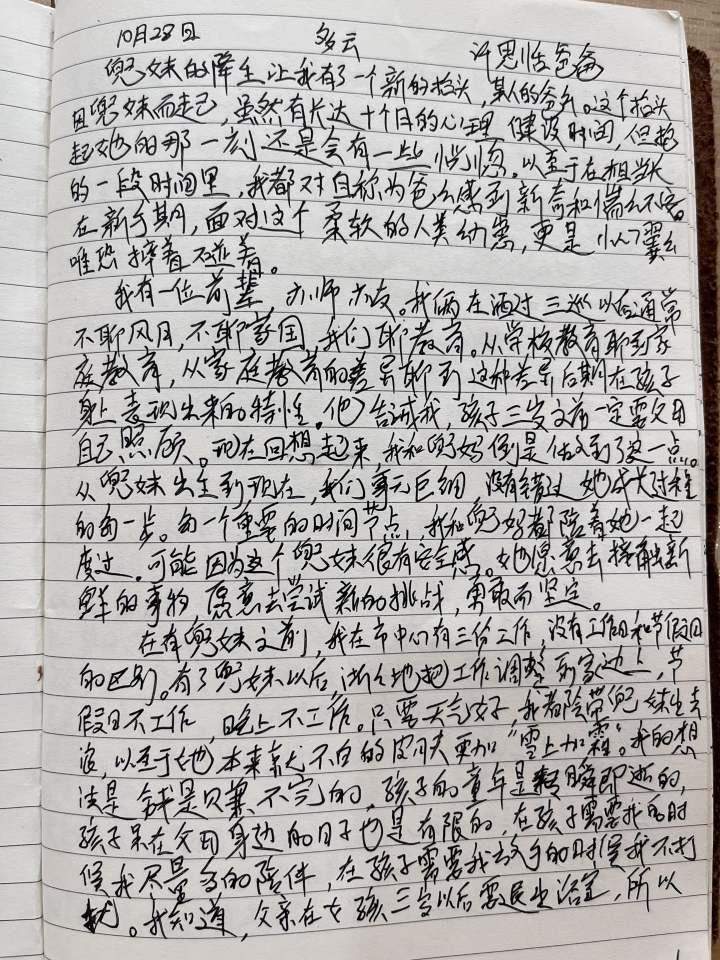 10月28日 多云 许思恬爸爸
兜妹的降生让我有了一个新的抬头,某人的爸爸。这个抬头
因兜妹而起,虽然有长达十个月的心理健设时间,但抱
起她的那一刻还是会有一些惶恐。以至于在相当长
的一段时间里,我都对自称为爸爸感到新奇和惴惴不安。
在新手期,面对这个柔软的人类幼崽,更是小心翼翼
唯恐摔着磕着。
我有一位前辈 亦师亦友。我俩在酒过三巡以后通常
不聊风月,不聊家国,我们聊教育。从学校教育聊到家
庭教育,从家庭教育的差异聊到这种差异后期在孩子
身上表现出来的特性。他告诫我,孩子三岁之前一定要父母
自己照顾。现在回想起来 我和兜妈倒是做到了这一点。
从兜妹出生到现在,我们事无巨细 没有错过她成长过程
的每一步。每一个重要的时间节点,我和兜妈都陪着她一起
度过。可能因为这个兜妹很有安全感。她愿意去接触新
鲜的事物 愿意去尝试新的挑战,勇敢而坚定。
在有兜妹之前,我在市中心有三份工作,没有工作日和节假日
的区别。有了兜妹以后,渐渐地把工作调整到家边上,节
假日不工作,晚上不工作。只要天气好,我都会带兜妹出去
浪,以至于她本来就不白的皮肤更加“雪上加霜”。我的想
法是 钱是只赚不完的,孩子的童年是转瞬即逝的,
孩子呆在父母身边的日子也是有限的,在孩子需要我的时
候我尽量多的陪伴,在孩子需要我放手的时候我不打
扰。我知道,父亲在女孩三岁以后要民生治定,所以